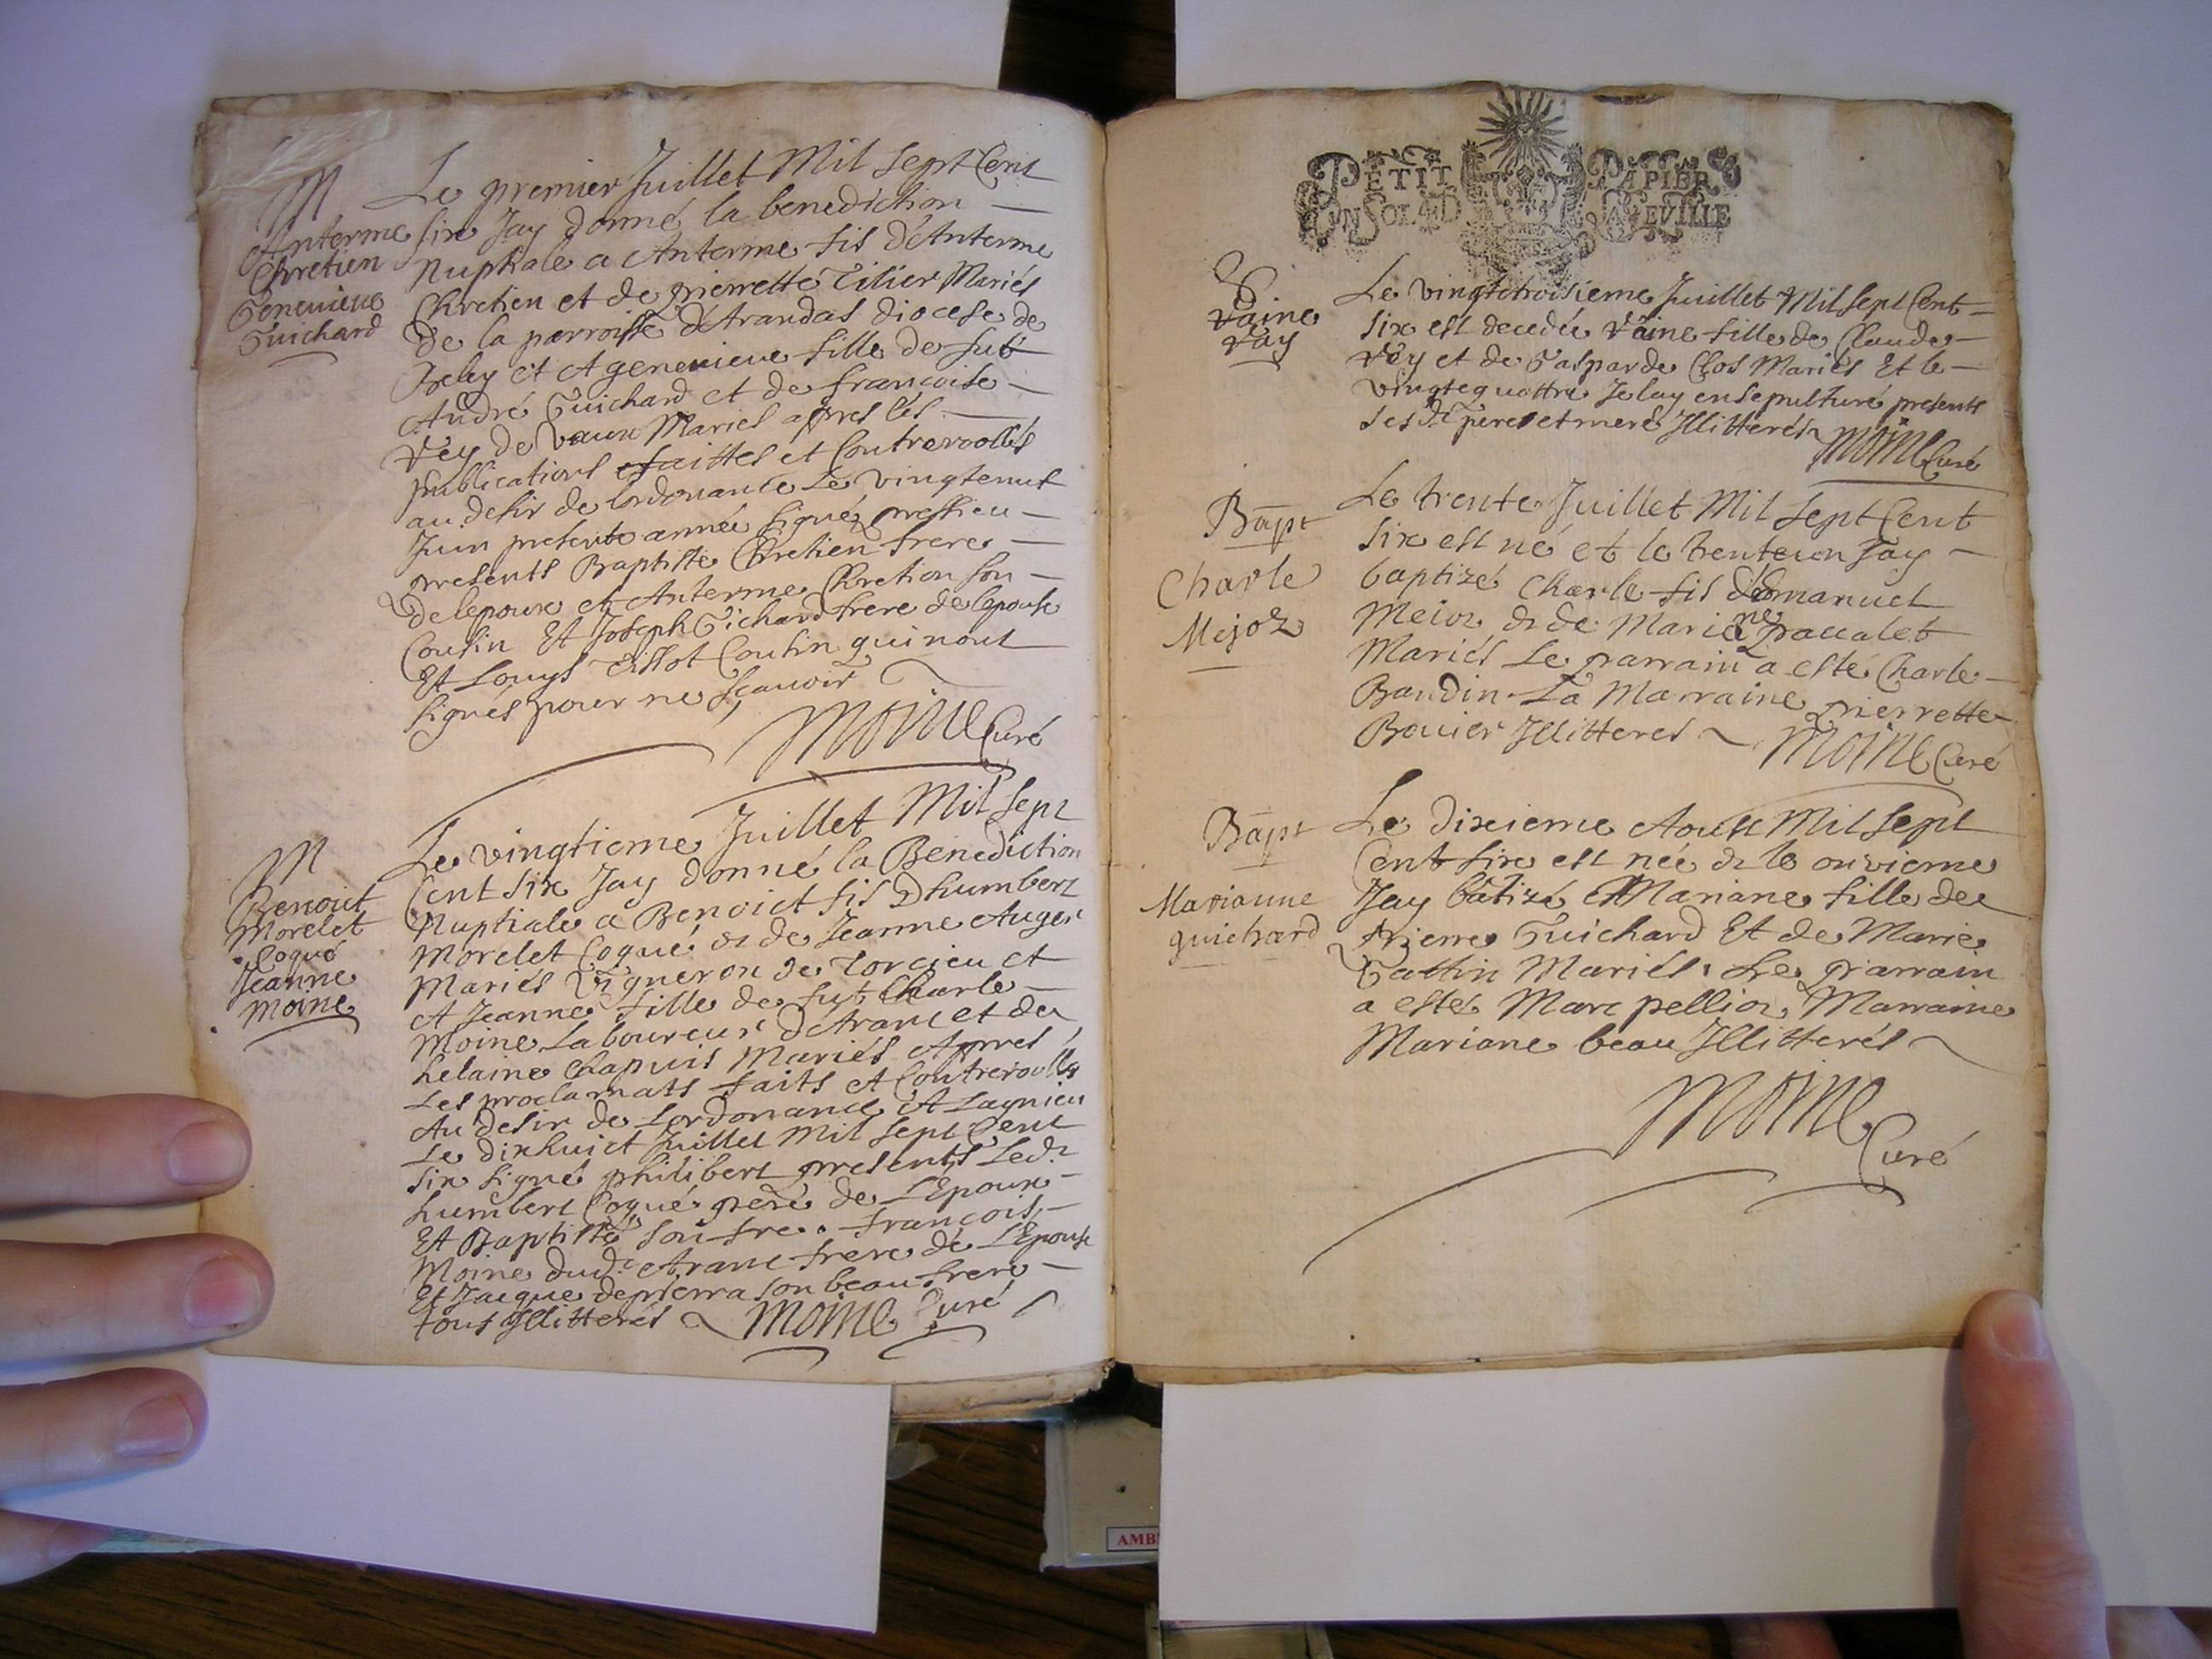 M
Anterme
Chretien
Genevieve
Guichard
Le premier Juillet Mil Sept Cent
six Jay donné la benediction
Nuptiale a Anterme fils d'Anterme
Chretien et de pierrette Tilier Mariés
De la parroisse d'Arandas diocese de
Beley et A genevieve fille de fut
André Guichard et de francoise
Vey de Vaux Mariés apres les
publications faittes et Controrollés
au desir de lordonance Le vingtenut
Juin presente année signé pressieu
presents Baptiste Chretien frere
De lepoux et Anterme Chretien son
Cousin Et Joseph Gichard frere de lepouse
Et Louys Tissot Cousin qui nont
signés pour ne scauoir
Moine Curé
M
Benoict
Morelet
Coqué
Jeanne
Moine
Le vingtieme Juillet Mil Sept
Cent Six Jay donné la Benediction
Nuptiale a Benoict fils Dhumbert
Morelet Coqué & de Jeanne Auger
Mariés Vigneron de Torcieu et
A Jeanne fille de fut Charle
Moine Laboureur d'Aranc et de
helaine Chapuis Mariés Apres
Les proclamats faits et Contrerollés
Au desir de Lordonance A Lagnieu
Le dixhuict Juillet Mil Sept Cent
Six signé philibert presents Ledt
humbert Coqué pere de L'Epoux
Et Baptiste son frere francois
Moine dudt Aranc frere de L'Epouse
Et Jacque depierra son beau frere
tous Illitterés Moine Curé
PETIT PAPIER
UN SOL 4 D LA FEUILLE
Vaine
Vay
Le vingttroisieme Juillet Mil Sept Cent
six est decedée Vaine fille de Claude
Vey et de Gasparde Clos Mariés Et le
vingtequattre Je lay ensepulturé presents
ses dt pere et mere Illitterés Moine Curé
Bapt
Charle
Mejoz
Le trente Juillet Mil Sept Cent
six est né et le trenteun Jay
baptizé Charle fils d'Emanuel
Meioz & de Marianne paccalet
Mariés Le parrain a esté Charle
Baudin La Marraine pierrette
Bouier Illitteres Moine Curé
Bapt
Marianne
guichard
Le dixieme Aoust Mil Sept
Cent six est née & le onzieme
Jay batizé Mariane fille de
pierre Guichard Et de Marie
Gattin Mariés. Le parrain
a esté Marc pellioz, Marraine
Mariane beau Illitterés
Moine
Curé
AMB